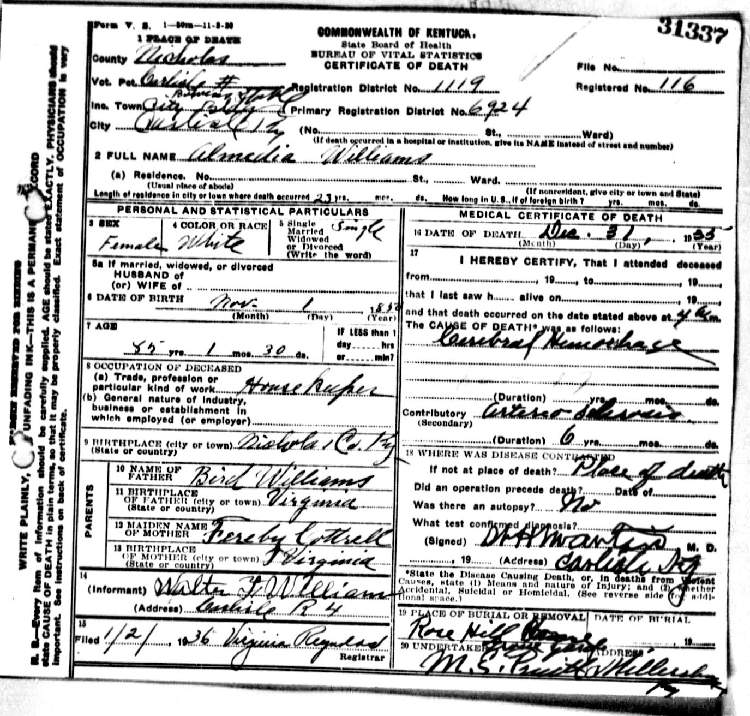 Form V. S. 1—50m—11-8-30
31337
COMMONWEALTH OF KENTUCKY.
State Board of Health
BUREAU OF VITAL STATISTICS
CERTIFICATE OF DEATH
1 PLACE OF DEATH
County Nicholas
File No.
Vot. Pct. Carlisle #
Registration District No. 1119
Registered No. 116
Inc. Town
Primary Registration District No. 6924
City Carlisle Ky (No. St., Ward)
(If death occurred in a hospital or institution, give its NAME instead of street and number)
2 FULL NAME Almedia Williams
(a) Residence. No. St., Ward.
(Usual place of abode) (If nonresident, give city or town and State)
Length of residence in city or town where death occurred 23 yrs. mos. ds. How long in U.S., if of foreign birth? yrs. mos. ds.
PERSONAL AND STATISTICAL PARTICULARS
3 SEX Female
4 COLOR OR RACE White
5 Single Married Widowed or Divorced (Write the word) Single
5a If married, widowed, or divorced
HUSBAND of
(or) WIFE of
6 DATE OF BIRTH Nov 1 1850
(Month) (Day) (Year)
7 AGE 85 yrs. 1 mos. 30 ds.
IF LESS than 1 day hrs or min?
8 OCCUPATION OF DECEASED
(a) Trade, profession or particular kind of work House keeper
(b) General nature of Industry, business or establishment in which employed (or employer)
9 BIRTHPLACE (city or town) Nicholas Co. Ky
(State or country)
PARENTS
10 NAME OF FATHER Bird Williams
11 BIRTHPLACE OF FATHER (city or town) Virginia
(State or country)
12 MAIDEN NAME OF MOTHER Fereby Cottrell
13 BIRTHPLACE OF MOTHER (city or town) Virginia
(State or country)
14
(Informant) Walter F. William
(Address) Carlisle R 4
15
Filed 1/2/ 1936 Virginia Reynolds
Registrar
MEDICAL CERTIFICATE OF DEATH
16 DATE OF DEATH Dec. 31, 1935
(Month) (Day) (Year)
17
I HEREBY CERTIFY, That I attended deceased
from , 19 , to , 19 ,
that I last saw h alive on , 19 ,
and that death occurred on the date stated above at 4 a m.
The CAUSE OF DEATH* was as follows:
Cerebral Hemorhage
(Duration) yrs. mos. ds.
Contributory Arterio Sclerosis
(Secondary)
(Duration) 6 yrs. mos. ds.
18 WHERE WAS DISEASE CONTRACTED
If not at place of death? Place of death
Did an operation precede death? Date of
Was there an autopsy? No
What test confirmed diagnosis?
(Signed) M. D.
, 19 (Address) Carlisle Ky
*State the Disease Causing Death, or, in deaths from Violent
Causes, state (1) Means and nature of Injury; and (2) whether
Accidental, Suicidal or Homicidal. (See reverse side for additional space.)
19 PLACE OF BURIAL OR REMOVAL DATE OF BURIAL
Rose Hill
20 UNDERTAKER ADDRESS
M. S. Pruitt Millersburg
Ky
MARGIN RESERVED FOR BINDING
WRITE PLAINLY, UNFADING INK—THIS IS A PERMANENT RECORD
N. B.—Every item of information should be carefully supplied. AGE should be stated EXACTLY. PHYSICIANS should
state CAUSE OF DEATH in plain terms, so that it may be properly classified. Exact statement of OCCUPATION is very
important. See instructions on back of certificate.